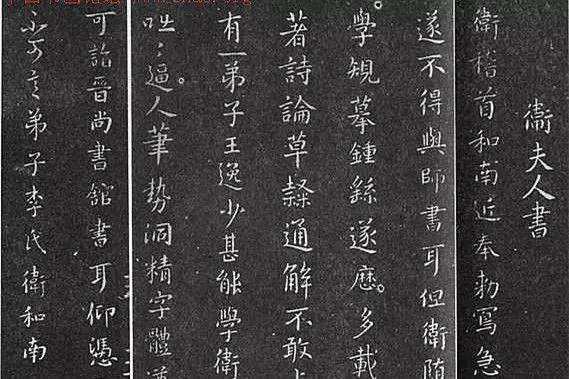 衛夫人書
衛稽首和南近奉勅寫急
遂不得與師書耳但衛随
學規摹鍾繇遂歷多載
著詩論草隸通解不敢上
有一弟子王逸少甚能學衛
咄〻逼人筆勢洞精字體
可詣晉尚書館書耳仰憑
不可言弟子李氏衛和南